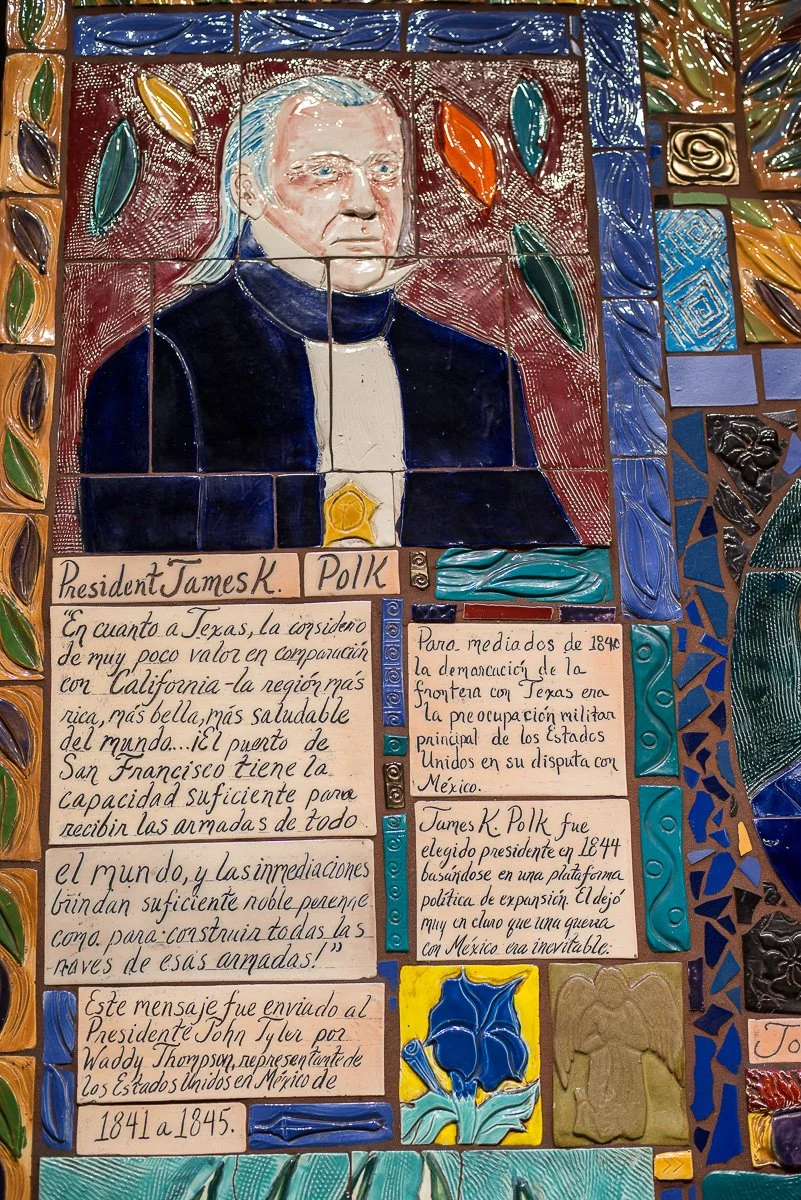 President James K. Polk
"En cuanto a Texas, la considero
de muy poco valor en comparación
con California-la región más
rica, más bella, más saludable
del mundo...¡El puerto de
San Francisco tiene la
capacidad suficiente para
recibir las armadas de todo
el mundo, y las inmediaciones
brindan suficiente roble perenne
como para construir todas las
naves de esas armadas!"
Este mensaje fue enviado al
Presidente John Tyler por
Waddy Thompson, representante de
los Estados Unidos en México de
1841 a 1845.
Para mediados de 1840
la demarcación de la
frontera con Texas era
la preocupación militar
principal de los Estados
Unidos en su disputa con
México.
James K. Polk fue
elegido presidente en 1844
basándose en una plataforma
política de expansión. El dejó
muy en claro que una guerra
con México era inevitable.